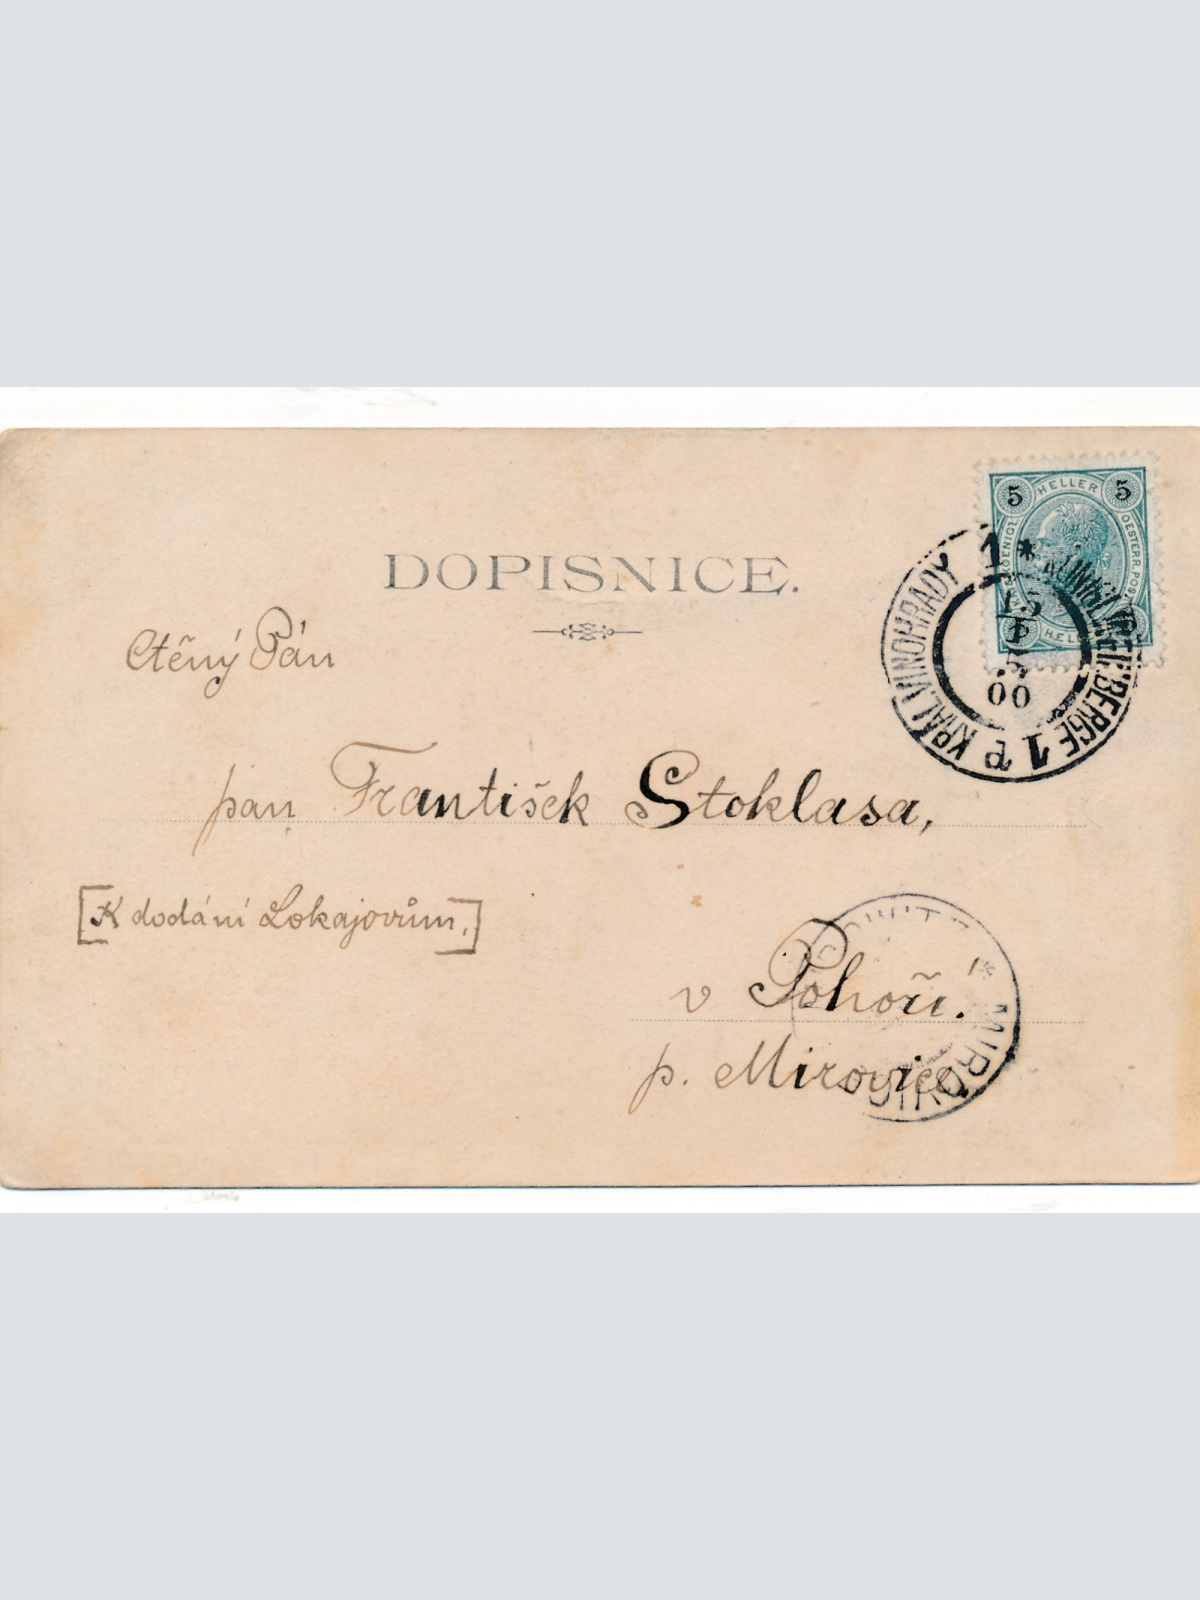 DOPISNICE.
5 HELLER 5
OESTERR. POST
HELL
KRÁL. VINOHRADY 1 *
BERGE 1 P
00
Ctěný Pán
pan František Stoklasa,
[K dodání Lokajovům.]
v Pohoří.
p. Mirovice
* MIROVICE